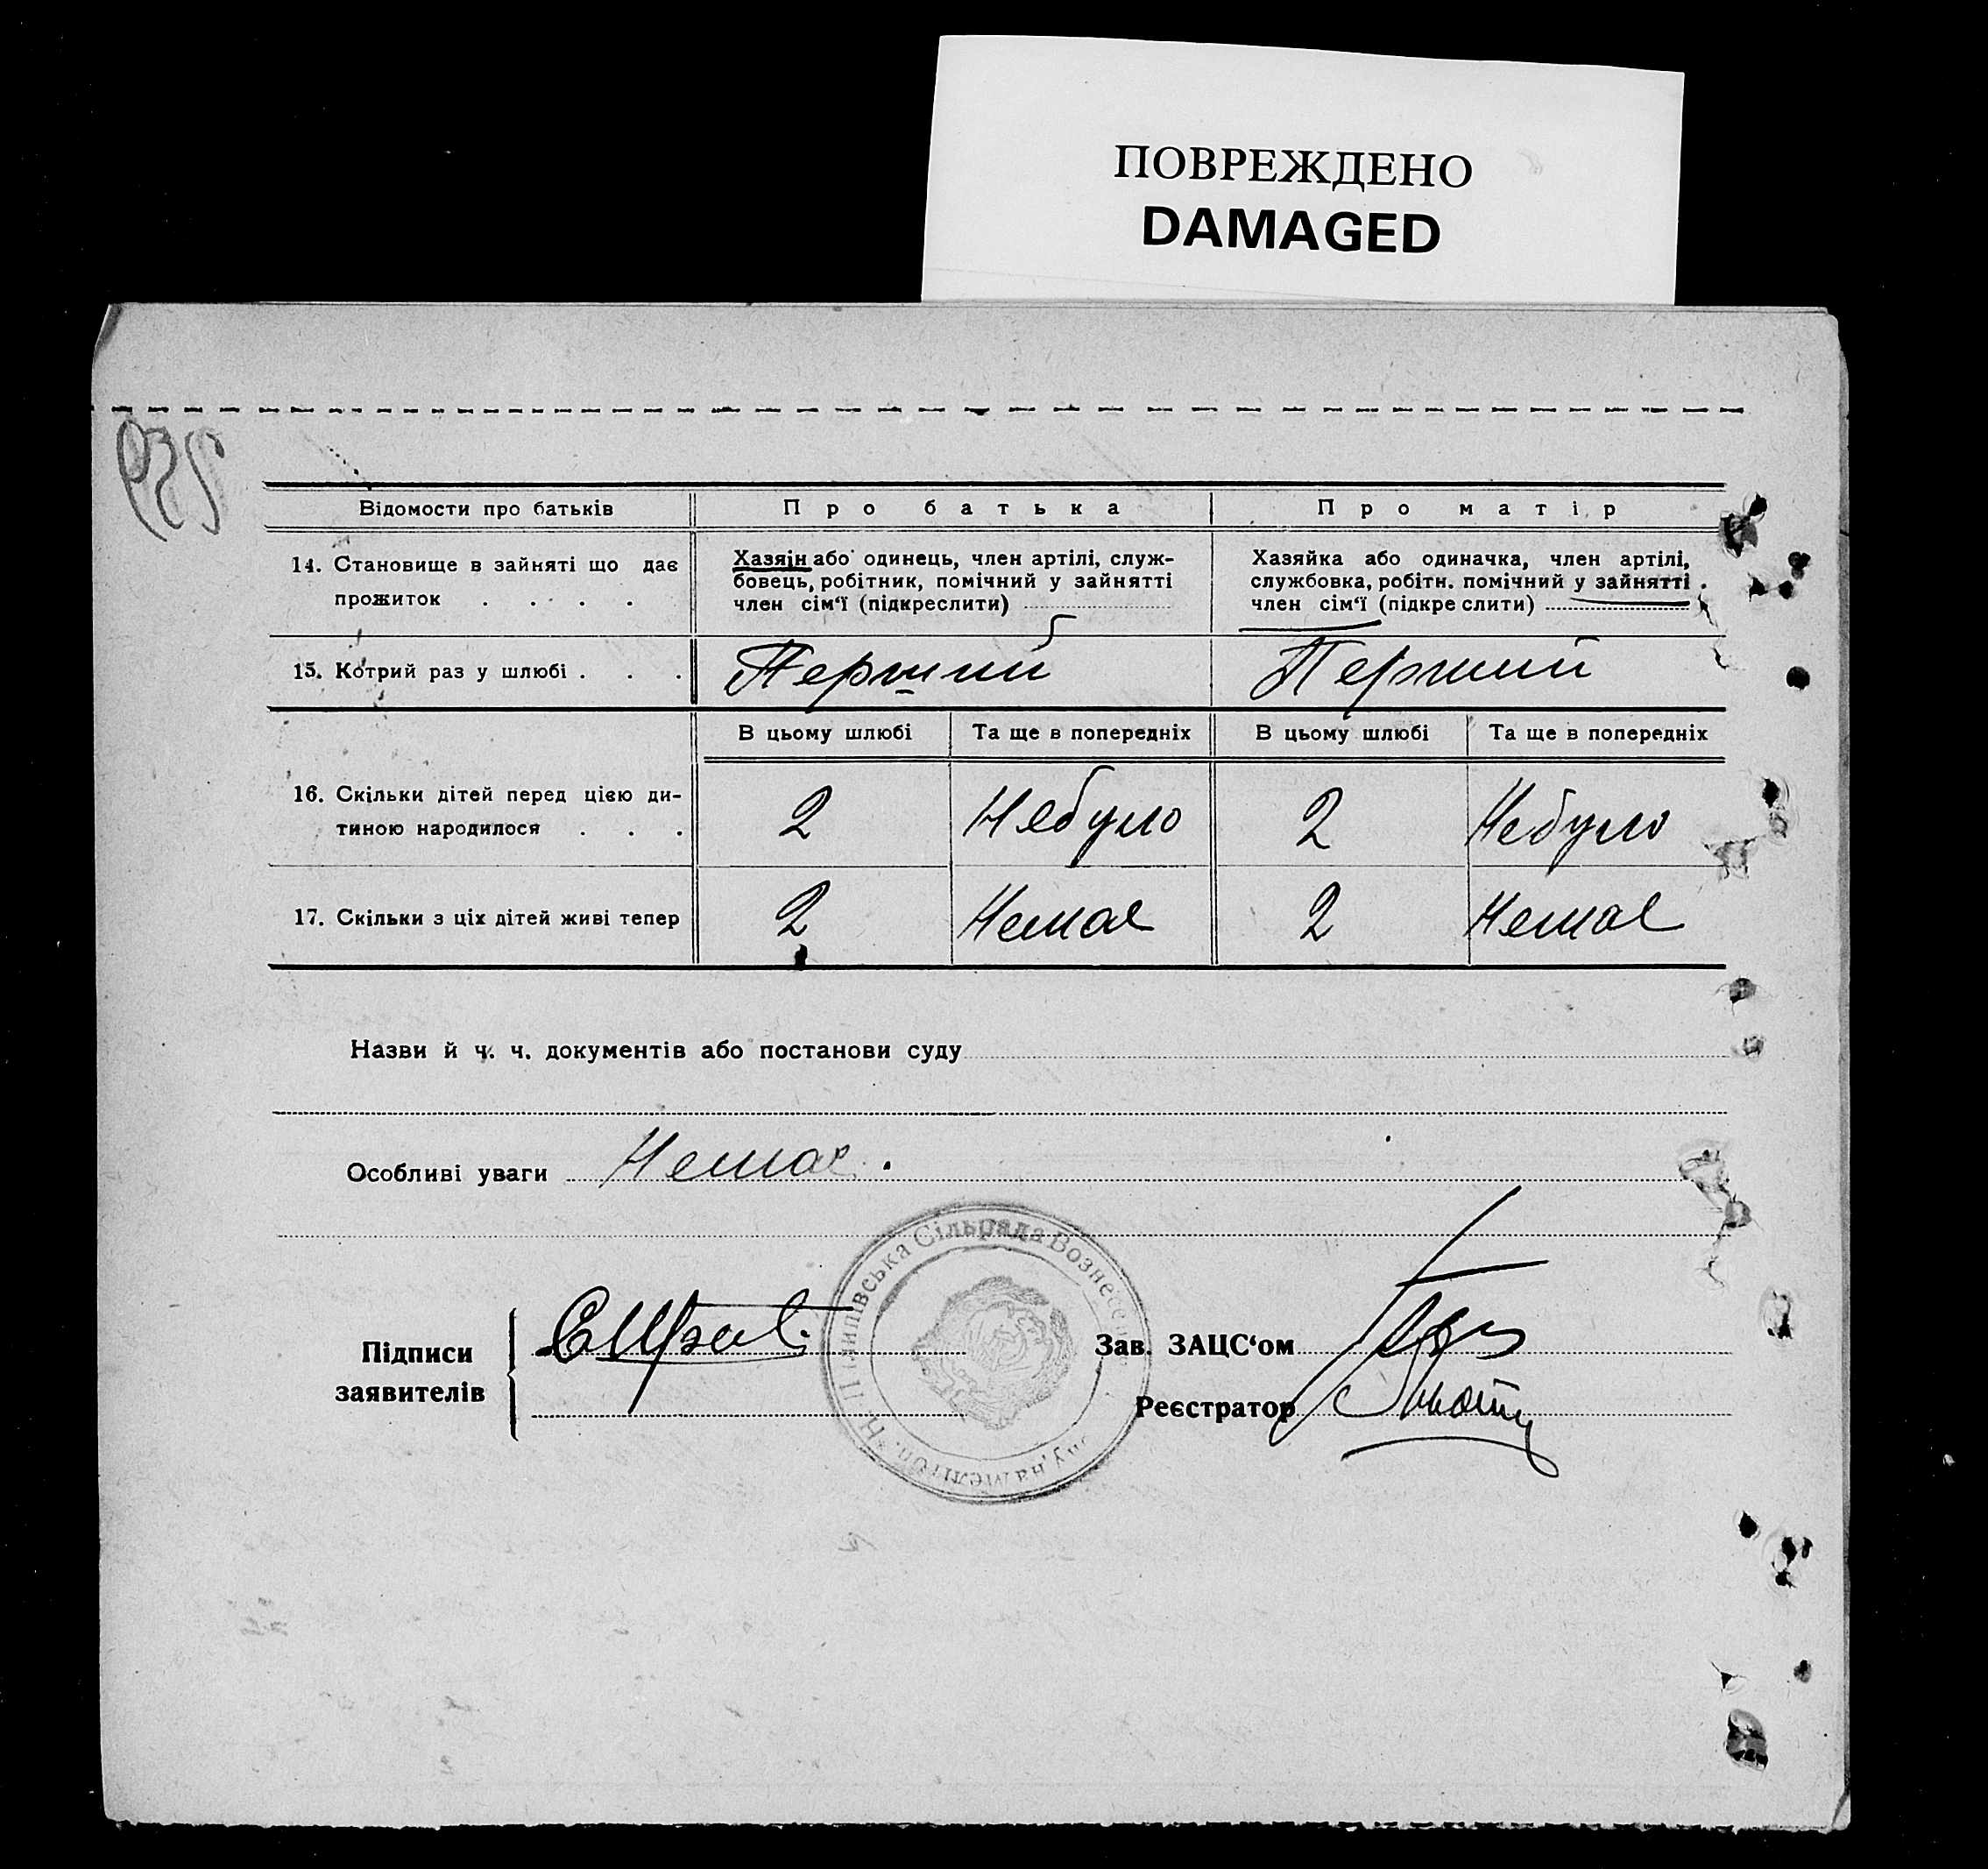 ПОВРЕЖДЕНО
DAMAGED
Відомости про батьків
Про батька
Про матір
14. Становище в зайняті що дає
прожиток . . . .
Хазяїн або одинець, член артілі, служ-
бовець, робітник, помічний у зайнятті
член сім‘ї (підкреслити)
Хазяйка або одиначка, член артілі,
службовка, робітн. помічний у зайнятті
член сім‘ї (підкре слити)
15. Котрий раз у шлюбі . . .
Перший
Перший
В цьому шлюбі
Та ще в попередніх
В цьому шлюбі
Та ще в попередніх
16. Скільки дітей перед цією ди-
тиною народилося . . .
2
Небуло
2
Небуло
17. Скільки з ціх дітей живі тепер
2
Немає
2
Немає
Назви й ч. ч. документів або постанови суду
Особливі уваги
Немає.
Підписи
заявителів
Зав. ЗАЦС‘ом
Реєстратор
Пилипівська Сільрада